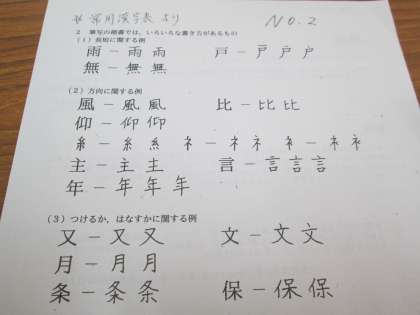 ※常用漢字表より NO.2
2 筆写の楷書では、いろいろな書き方があるもの
(1) 長短に関する例
雨－雨 雨 戸－戸 戸 戸
無－無 無
(2) 方向に関する例
風－風 風 比－比 比
仰－仰 仰
糸－糸 糸 ネ－ネ ネ ネ－ネ ネ
主－主 主 言－言 言 言
年－年 年 年
(3) つけるか、はなすかに関する例
又－又 又 文－文 文
月－月 月
条－条 条 保－保 保